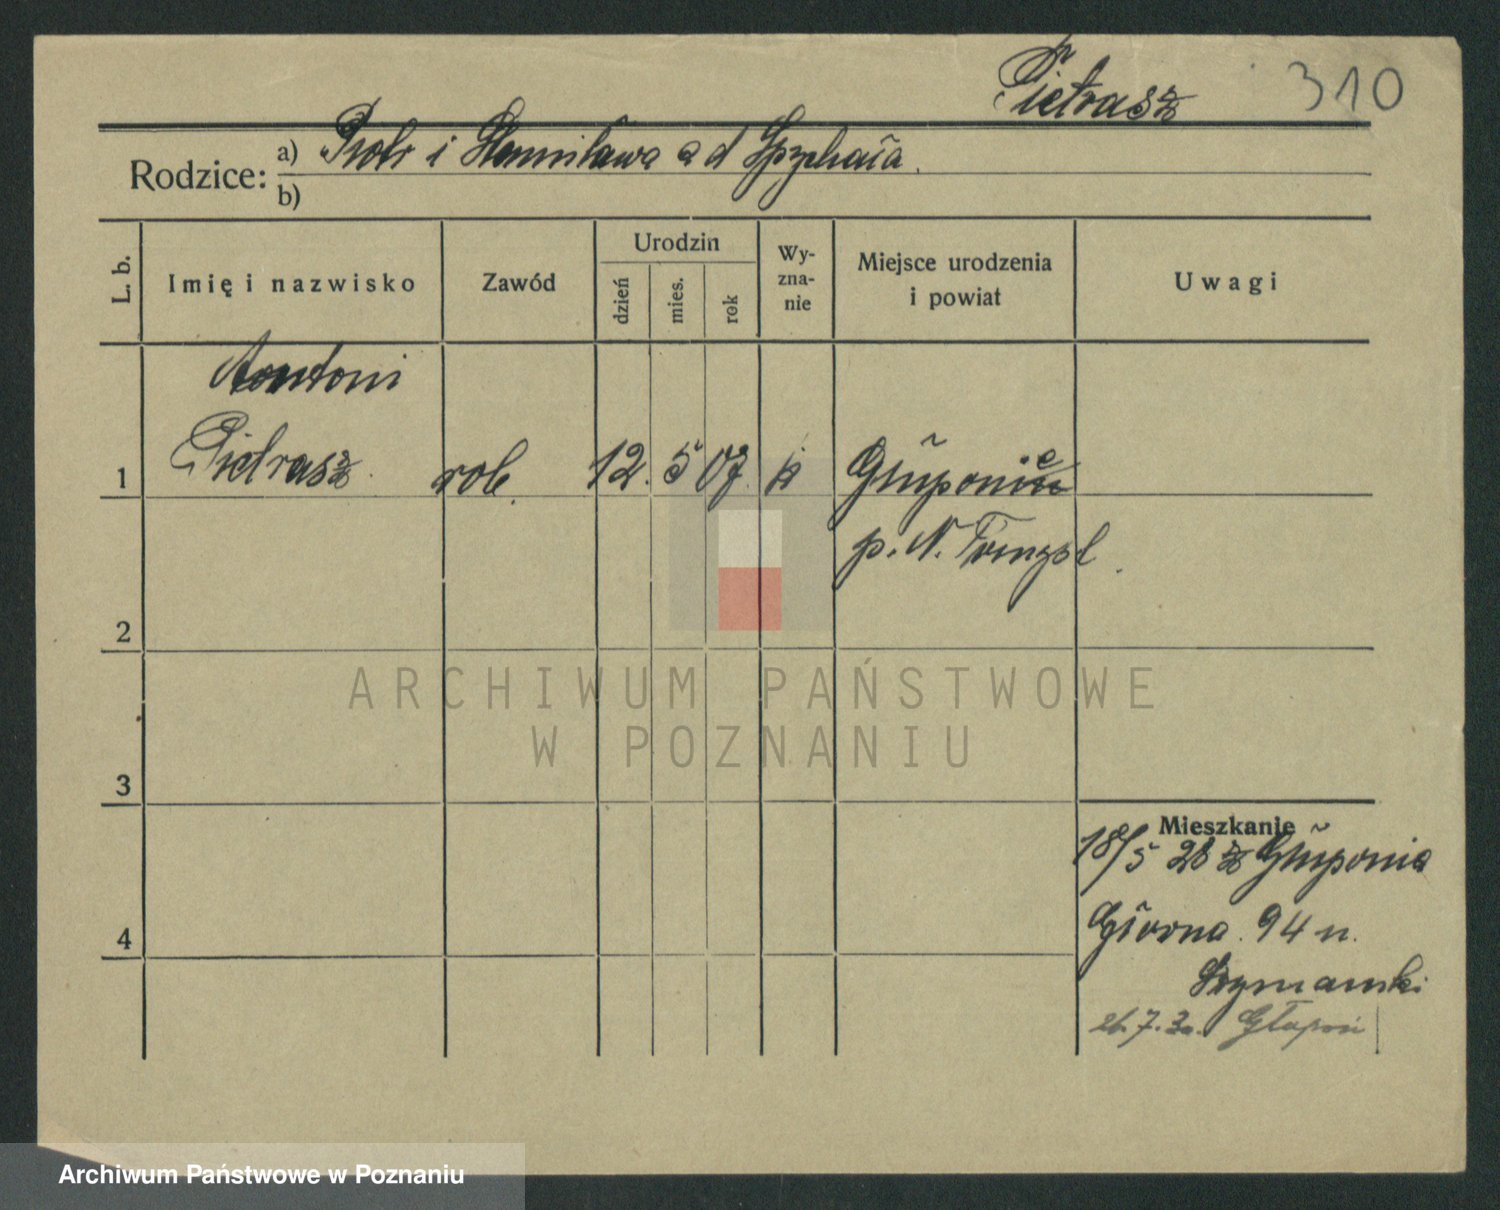 Pietrasz 310
Rodzice: a) Piotr i Stanisława a d Spychała
b)
L. b. Imię i nazwisko Zawód Urodzin dzień mies. rok Wy-zna-nie Miejsce urodzenia i powiat Uwagi
Antoni
1 Pietrasz rob. 12. 5 07 k Głuponie
p. N. Tomyśl.
2
ARCHIWUM PAŃSTWOWE
W POZNANIU
3
Mieszkanie
18/5 28 z Głuponia
4 Główna 94 u.
Szymański
26.7.30. Głupoń
Archiwum Państwowe w Poznaniu